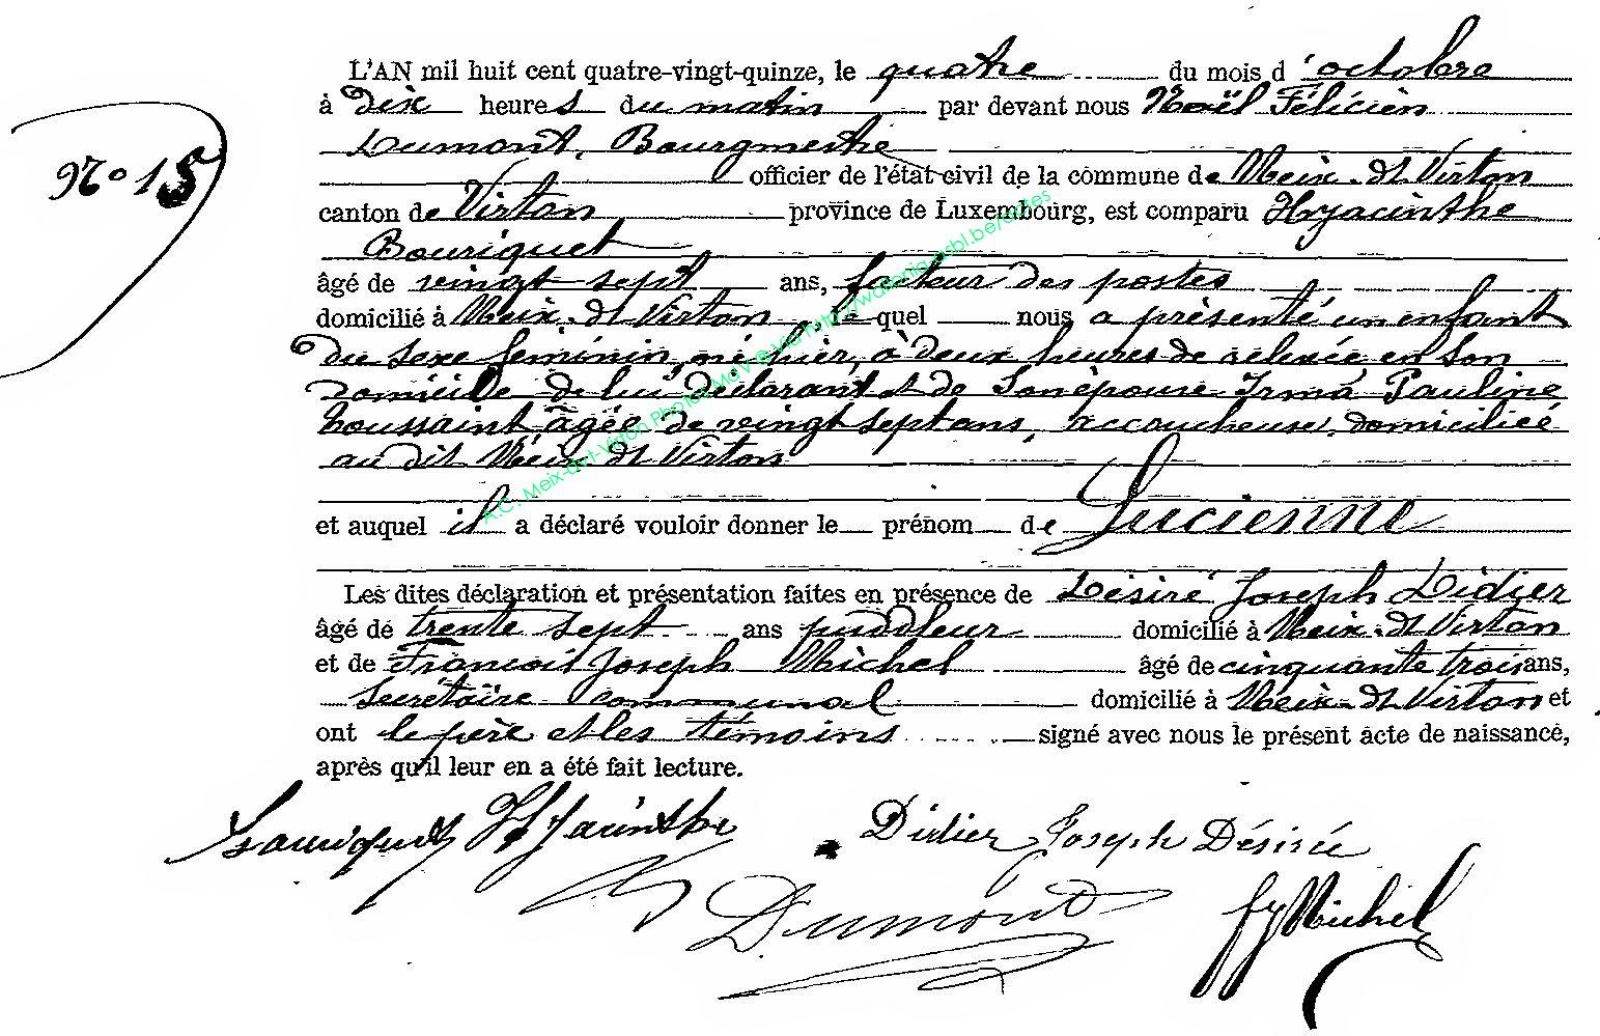 L'AN mil huit cent quatre-vingt-quinze, le quatre du mois d'octobre
à dix heures du matin par devant nous Noël Félicien
Dumont, Bourgmestre
officier de l'état-civil de la commune de Meix-dt Virton
N° 15
canton de Virton province de Luxembourg, est comparu Hyacinthe
Bouriquet
âgé de vingt sept ans, facteur des postes
domicilié à Meix-dt Virton, lequel nous a présenté un enfant
du sexe féminin, né hier, à deux heures de relevée en son
domicile de lui déclarant et de son épouse Irma Pauline
Toussaint âgée de vingt sept ans, accoucheuse, domiciliée
au dit Meix-dt Virton
et auquel il a déclaré vouloir donner le prénom de Lucienne
Les dites déclaration et présentation faites en présence de Désiré Joseph Didier
âgé de trente sept ans puddleur domicilié à Meix-dt Virton
et de François Joseph Michel âgé de cinquante trois ans,
secrétaire communal domicilié à Meix-dt Virton et
ont le père et les témoins signé avec nous le présent acte de naissance,
après qu'il leur en a été fait lecture.
Bouriquet Hyacinthe Didier Joseph Désiré
Dumont fj Michel
A.C. Meix-dvt-Virton Photo